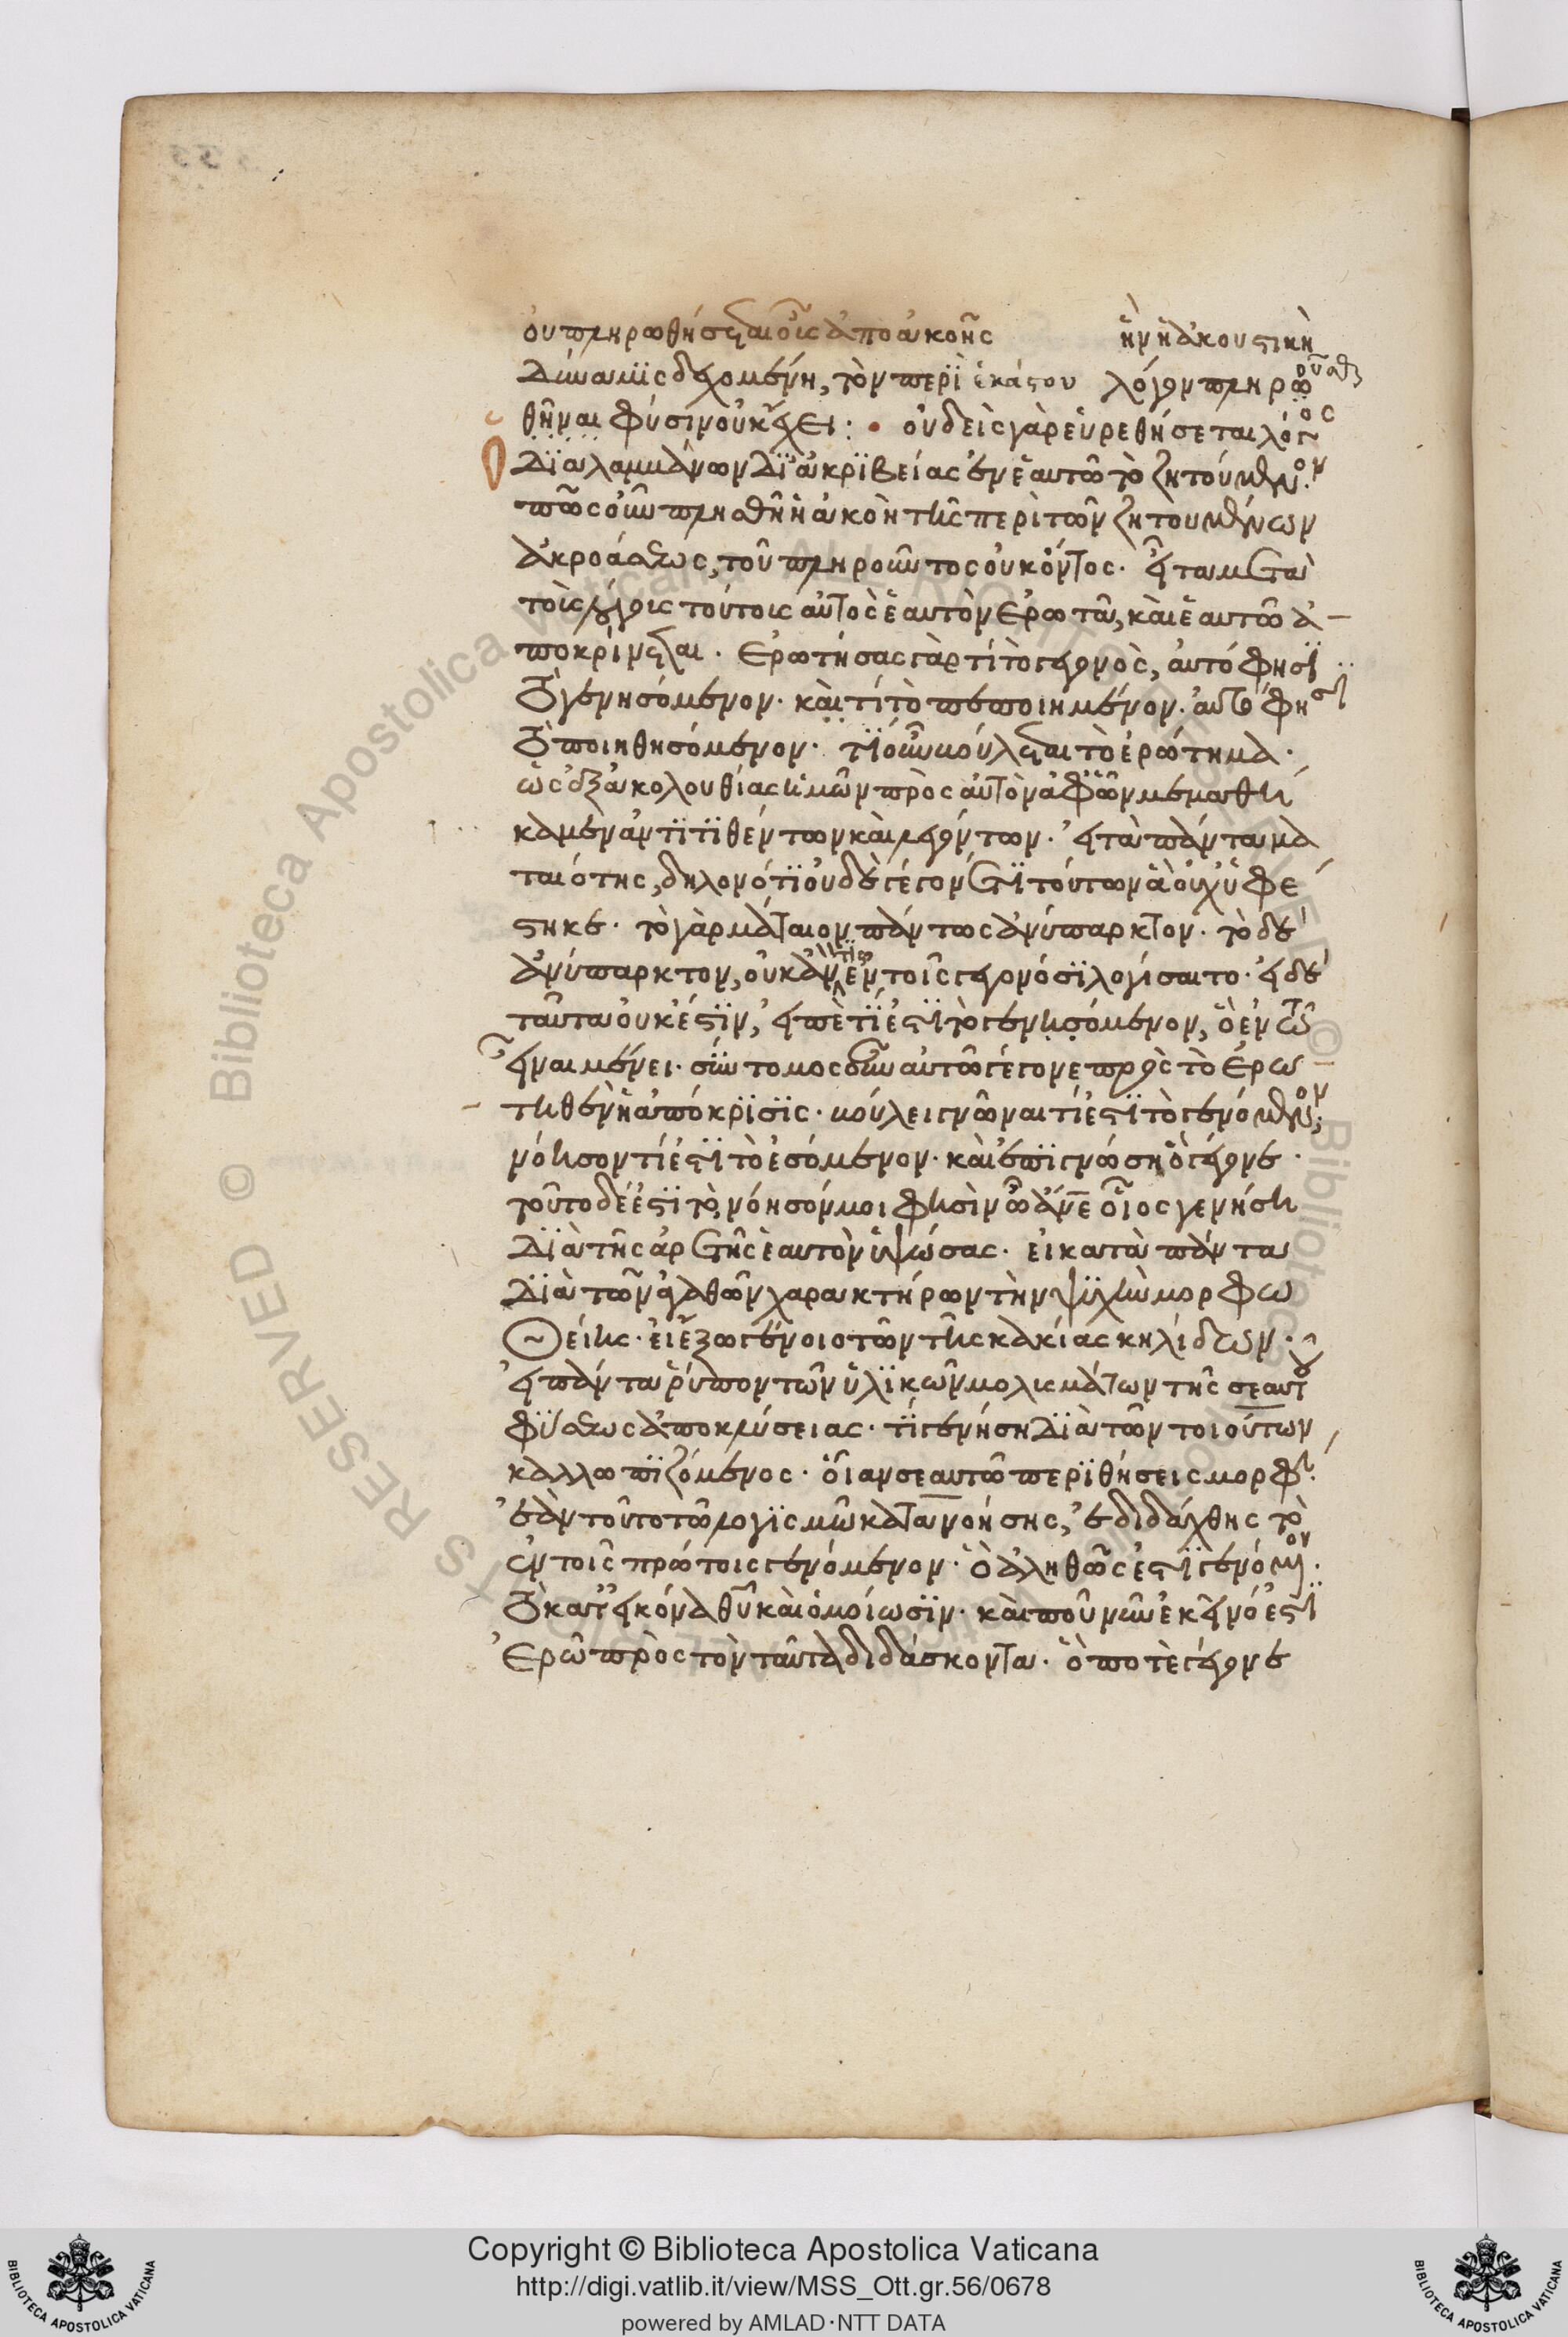 οὐ πληρωθήσεται οὖς ἀπὸ ἀκοῆς ἣν ἡ ἀκουστικὴ
δύναμις δεχομένη, τὸν περὶ ἑκάστου λόγον πληροῦσθαι
θῆναι φύσιν οὐκ ἔχει : • οὐδεὶς γὰρ εὑρεθήσεται λόγος
διαλαμβάνων δι' ἀκριβείας ἐν ἑαυτῶ τὸ ζητούμενον.
πῶς οὖν πλησθῆ ἡ ἀκοὴ τῆς περὶ τῶν ζητουμένων
ἀκροάσεως, τοῦ πληροῦντος οὐκ ὄντος. εἶτα μετὰ
τοὺς λόγους τούτους αὐτὸς ἑαυτὸν ἐρωτᾶ, καὶ ἑαυτῶ ἀ-
ποκρίνεται. ἐρωτήσας γὰρ τί τὸ γεγονὸς, αὐτό φησι
τὸ γενησόμενον. καὶ τί τὸ πεποιημένον. αὐτό φησι
τὸ ποιηθησόμενον. τί οὖν βούλεται τὸ ἐρώτημα.
ὡς ἐξ ἀκολουθίας ἡμῶν πρὸς αὐτὸν ἀφ' ὧν μεμαθή
καμεν ἀντιτιθέντων καὶ λεγόντων. εἰ τὰ πάντα μα
ταιότης, δηλονότι οὐδὲ γέγονέ τι τούτων ἃ οὐχ ὑφέ
στηκε. τὸ γὰρ μάταιον πάντως ἀνύπαρκτον. τὸ δὲ
ἀνύπαρκτον, οὐκ ἄν τις ἐν τοῖς γεγονόσι λογίσαιτο. εἰ δὲ
ταῦτα οὐκ ἔστιν, εἰπὲ τί ἐστι τὸ γενησόμενον, ὃ ἐν τῶ
εἶναι μένει. σύντομος οὖν αὐτῶ γέγονε πρὸς τὸ ἐρω
τηθὲν ἡ ἀπόκρισις. βούλει γνῶναι τί ἐστι τὸ γενόμενον;
νόησον τί ἐστι τὸ ἐσόμενον. καὶ ἐπιγνώση ὃ γέγονε.
τοῦτο δέ ἐστι τὸ, νόησόν μοι φησὶν ὦ ἄνε οἷος γενήση
διὰ τῆς ἀρετῆς ἑαυτὸν ὑψώσας. εἰ κατὰ πάντα
διὰ τῶν ἀγαθῶν χαρακτήρων τὴν ψυχὴν μορφω
θείης. εἰ ἔξω γένοιο τῶν τῆς κακίας κηλίδων.
εἰ πάντα ῥύπον τῶν ὑλικῶν μολυσμάτων τῆς σεαυτοῦ
φύσεως ἀποκλύσειας. τί γενήση διὰ τῶν τοιούτων
καλλωπιζόμενος. οἵαν σεαυτῶ περιθήσεις μορφήν.
ἐὰν τοῦτο τῶ λογισμῶ κατανοήσης, ἐδιδάχθης τὸ
ἐν τοῖς πρώτοις γενόμενον. ὃ ἀληθῶς ἐστι γενόμενον.
τὸ κατ' εἰκόνα θυ καὶ ὁμοίωσιν. καὶ ποῦ νῦν ἐκεῖνό ἐστι
ἐρῶ πρὸς τὸν ταῦτα διδάσκοντα. ὅ ποτὲ γέγονε
Copyright © Biblioteca Apostolica Vaticana
http://digi.vatlib.it/view/MSS_Ott.gr.56/0678
powered by AMLAD·NTT DATA